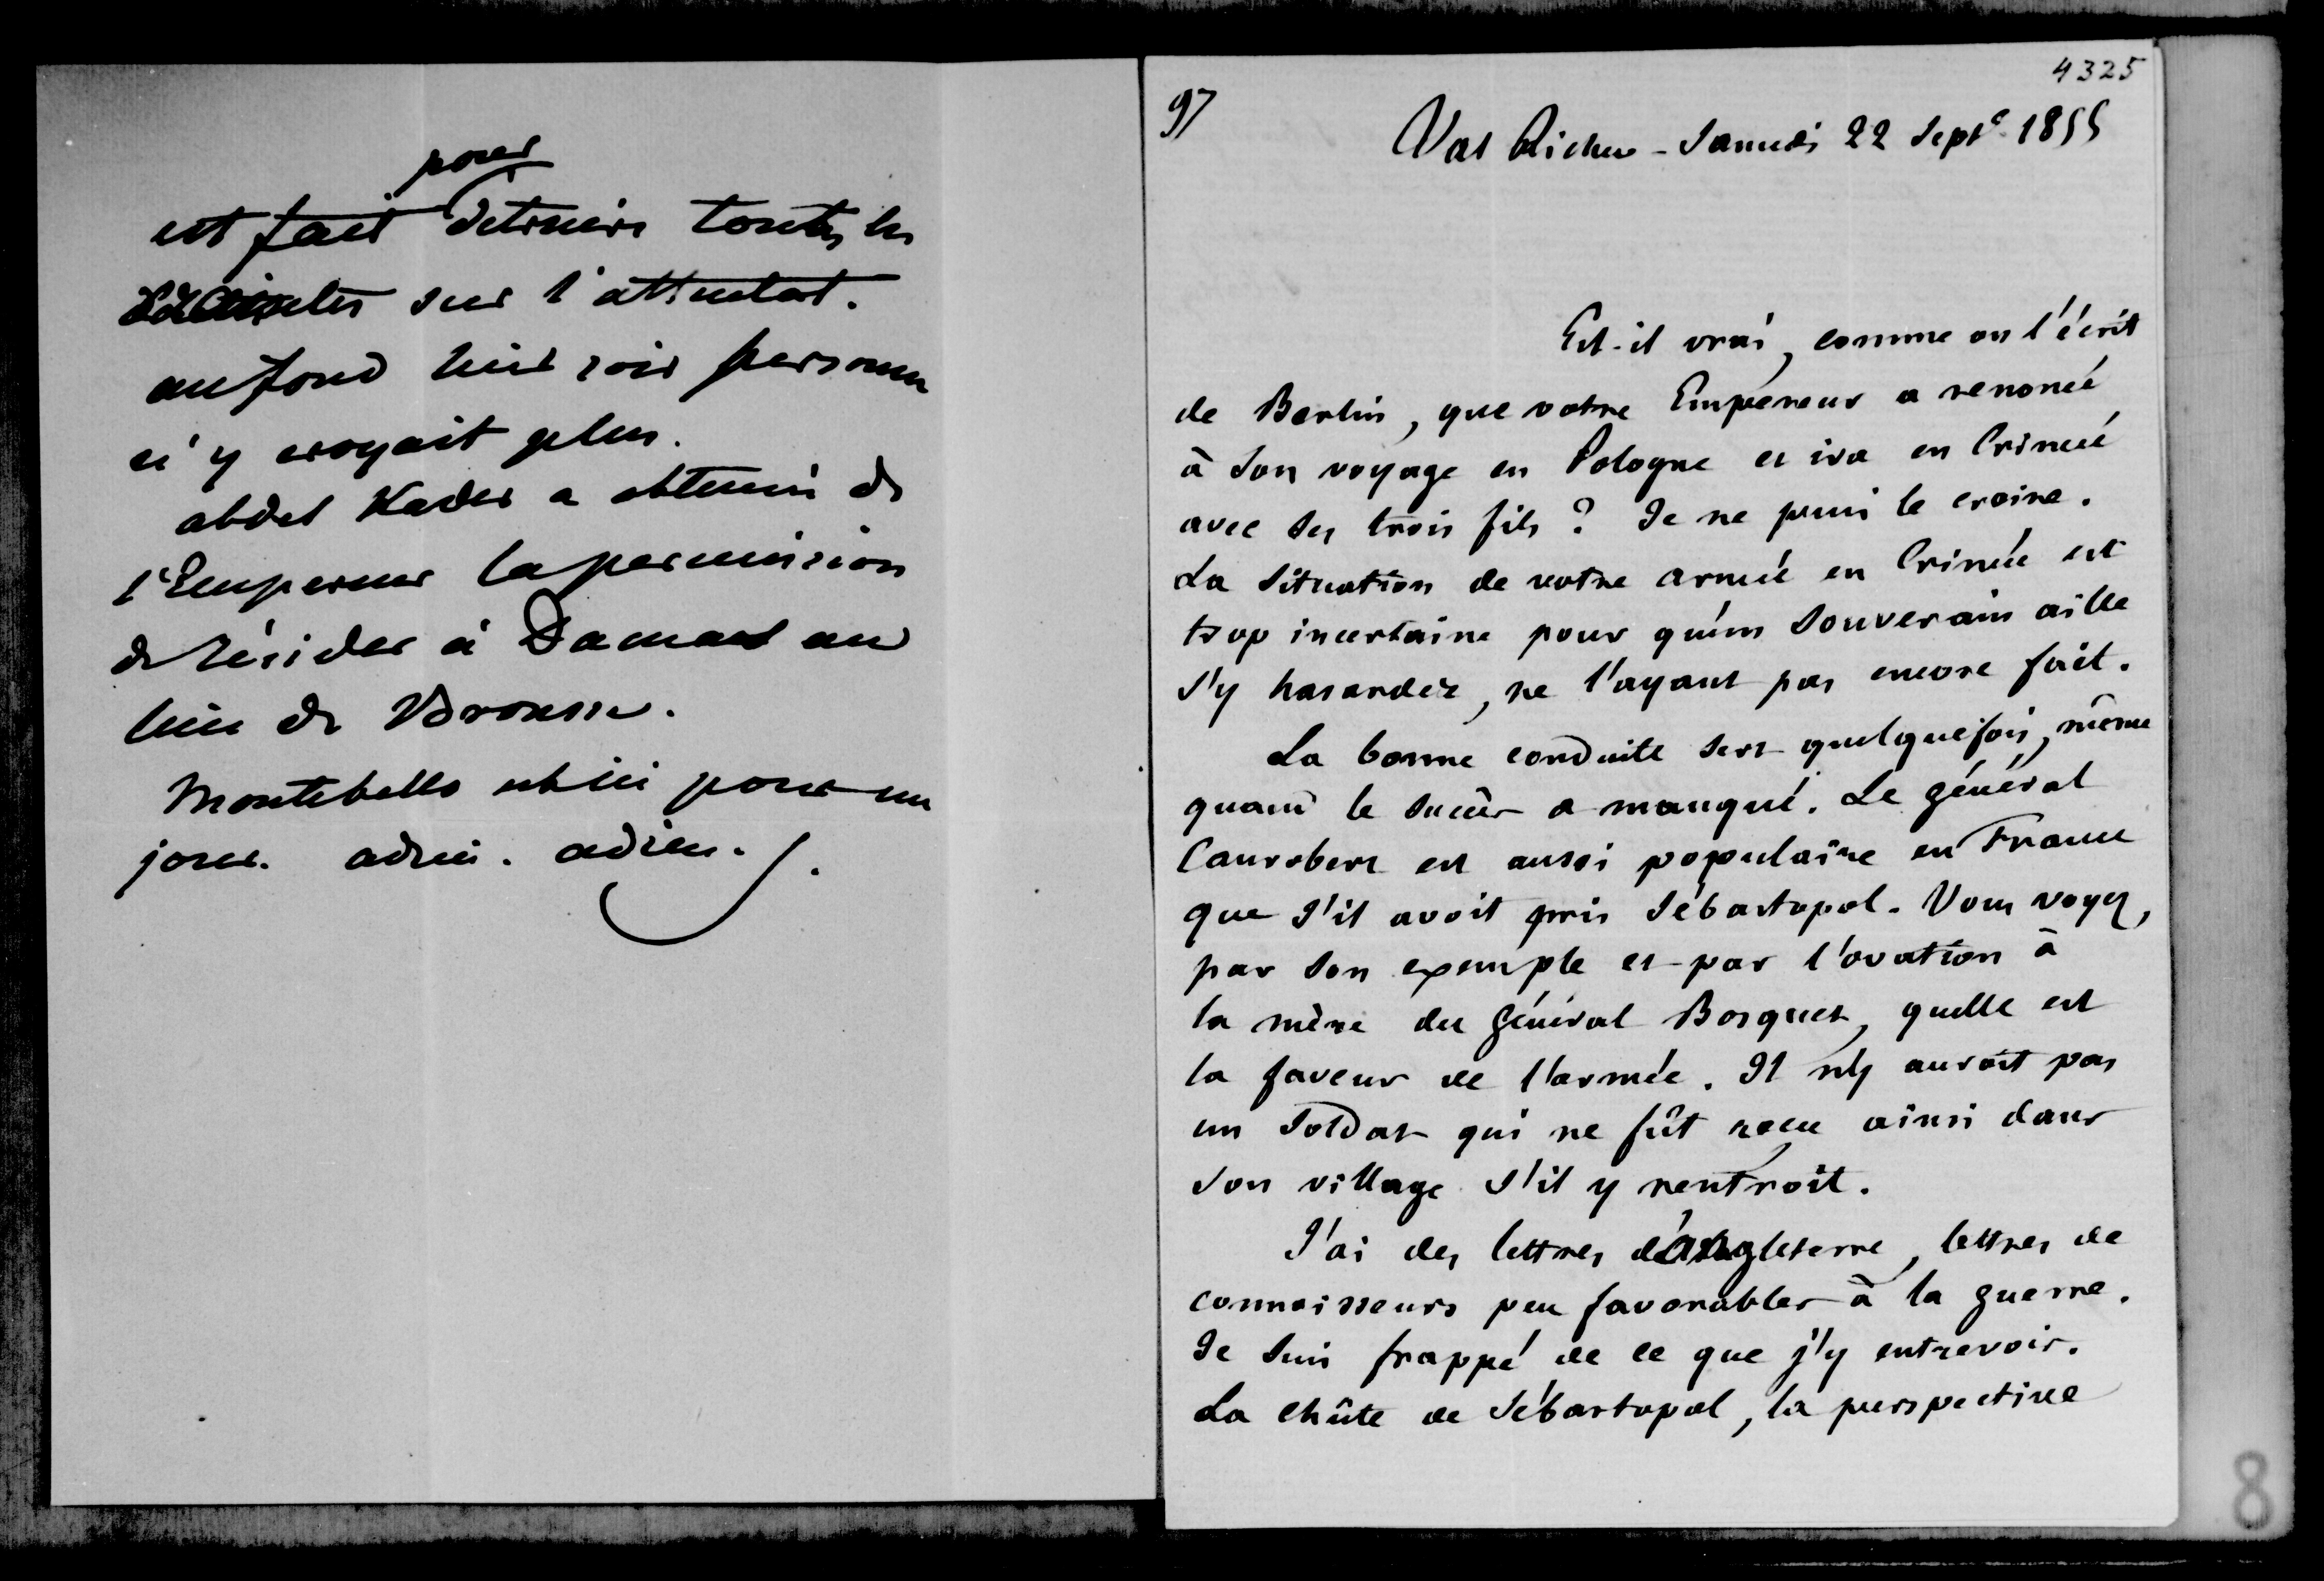 pour
est fait detruire toutes les
sur l'attentat.
au fond hier soir personne
n'y croyait plus.
abdel Kader a obtenu de
l'Empereur la permission
de résider à Damas au
lieu de Brousse.
Montebello est ici pour un
jour. adieu. adieu.
4325
97
Val Richer - Samedi 22 Septe 1855
Est-il vrai, comme on l'écrit
de Berlin, que votre Empereur a renoncé
à son voyage en Pologne et ira en Crimée
avec ses trois fils ? Je ne puis le croire.
La situation de votre armée en Crimée est
trop incertaine pour qu'un Souverain aille
s'y hasarder, ne l'ayant pas encore fait.
La bonne conduite sert quelquefois, même
quand le succès a manqué. Le général
Canrobert est aussi populaire en France
que s'il avoit pris Sébastopol. Vous voyez,
par son exemple et par l'ovation à
la mère du général Bosquet, quelle est
la faveur de l'armée. Il n'y auroit pas
un soldat qui ne fût reçu ainsi dans
son village s'il y rentroit.
J'ai des lettres d'Angleterre, lettres de
connoisseurs peu favorables à la guerre.
Je suis frappé de ce que j'y entrevois.
La chûte de Sébastopol, la perspective
8